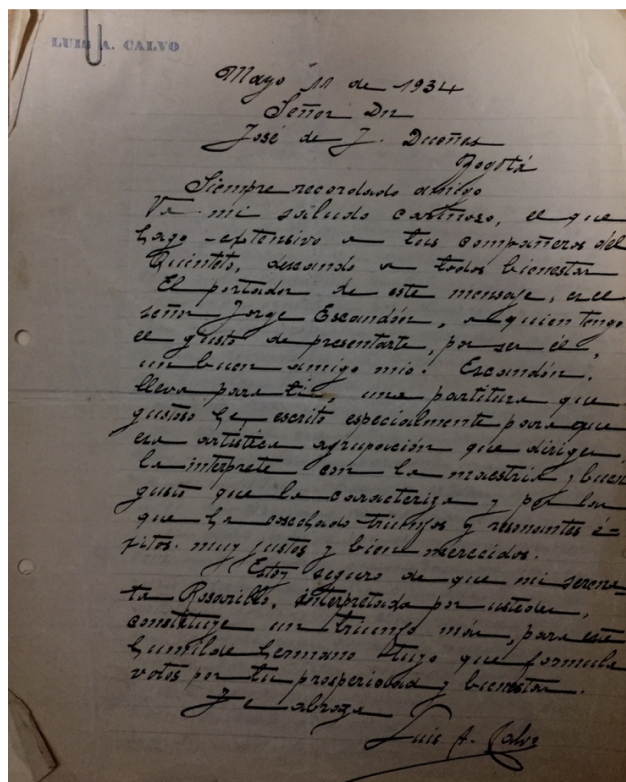 LUIS A. CALVO
Mayo 11 de 1934
Señor Dr
José de J. Dueñas
Bogotá
Siempre recordado amigo
Va mi saludo cariñoso, el que
hago extensivo a tus compañeros del
Quinteto, deseando a todos bienestar
El portador de este mensaje, es el
señor Jorge Escandón, a quien tengo
el gusto de presentarte, por ser él,
un buen amigo mio. Escandón,
lleva para tí, una partitura que
gustoso he escrito especialmente para que
esa artística agrupación que diriges,
la interprete con la maestria y buen
gusto que la caracteriza y por los
que ha cosechado triunfos y resonantes é-
xitos. muy justos y bien merecidos.
Estoy seguro de que mi serena-
ta Rosarillo, interpretada por ustedes,
constituye un triunfo más, para este
humilde hermano tuyo que formula
votos por tu prosperidad y bienestar.
Te abraza
Luis A. Calvo